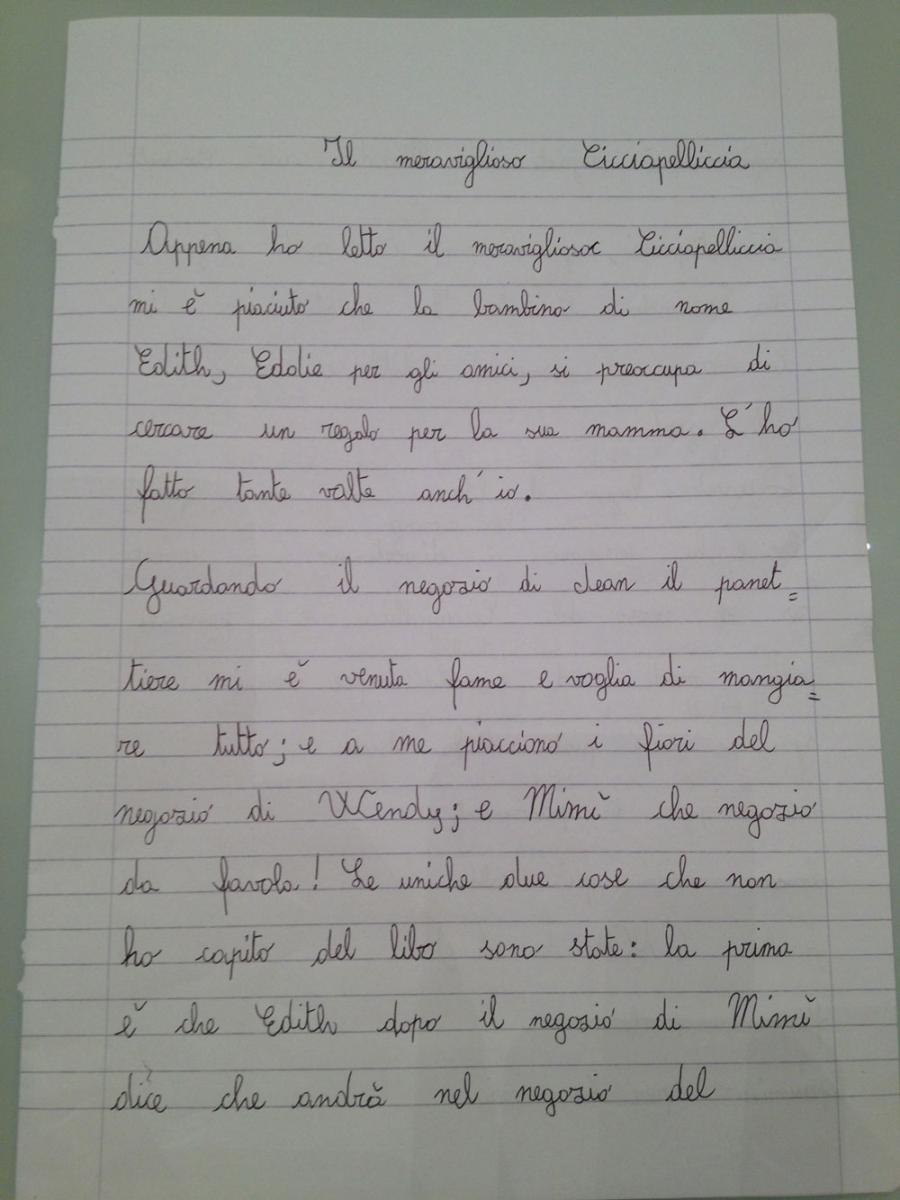 Il meraviglioso Cicciapelliccia
Appena ho letto il meravigliosoc Cicciapelliccia
mi è piaciuto che la bambina di nome
Edith, Eddie per gli amici, si preoccupa di
cercare un regalo per la sua mamma. L'ho
fatto tante valte anch'io.
Guardando il negozio di Jean il panet=
tiere mi è venuta fame e voglia di mangia=
re tutto; e a me piacciono i fiori del
negozio di Wendy; e Mimì che negozio
da favola! Le uniche due cose che non
ho capito del libo sono state: la prima
è che Edith dopo il negozio di Mimì
dice che andrà nel negozio del